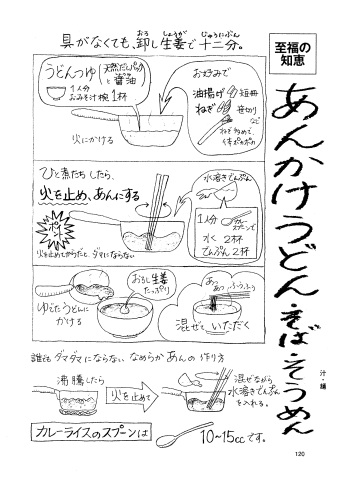 具がなくても、卸し生姜で十二分。
おろ
しょうが
じゅうにぶん
至福の
知恵
あんかけうどん・そば・そうめん
汁・麺
うどんつゆ
天然だしパック
と
醤油
1人分
おみそ汁椀1杯
火にかける
お好みで
油揚げ
短冊
ねぎ
笹切り
など
ねぎ多めで、
体ポカポカ
ひと煮たちしたら、
火を止め、あんにする
ポイント
火を止めてからだと、ダマにならない
水溶きでんぷん
1人分
カレースプーンで
水 2杯
でんぷん 2杯
ゆでたうどんに
かける
おろし生姜
たっぷり
あつあつ
ふぅふぅ
混ぜて、いただく
誰もダマダマにならない なめらかあんの作り方
沸騰したら
火を止めて
混ぜながら
水溶きでんぷん
を入れる。
カレーライスのスプーンは
10〜15ccです。
120